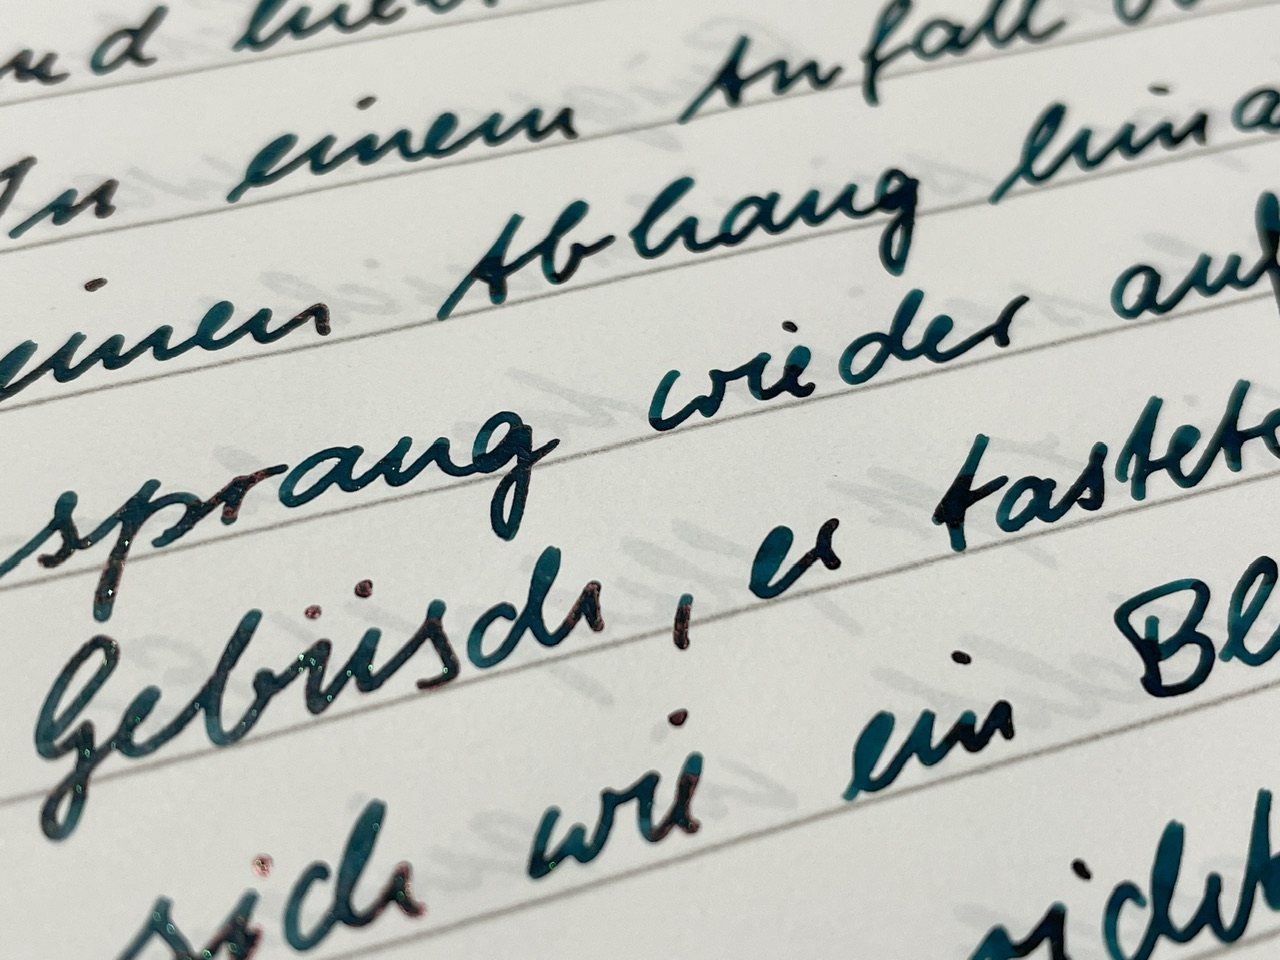 und
In einem Anfall
einen Abhang hina
sprang wieder auf
Gebüsch, er tastete
sich wie ein Bl